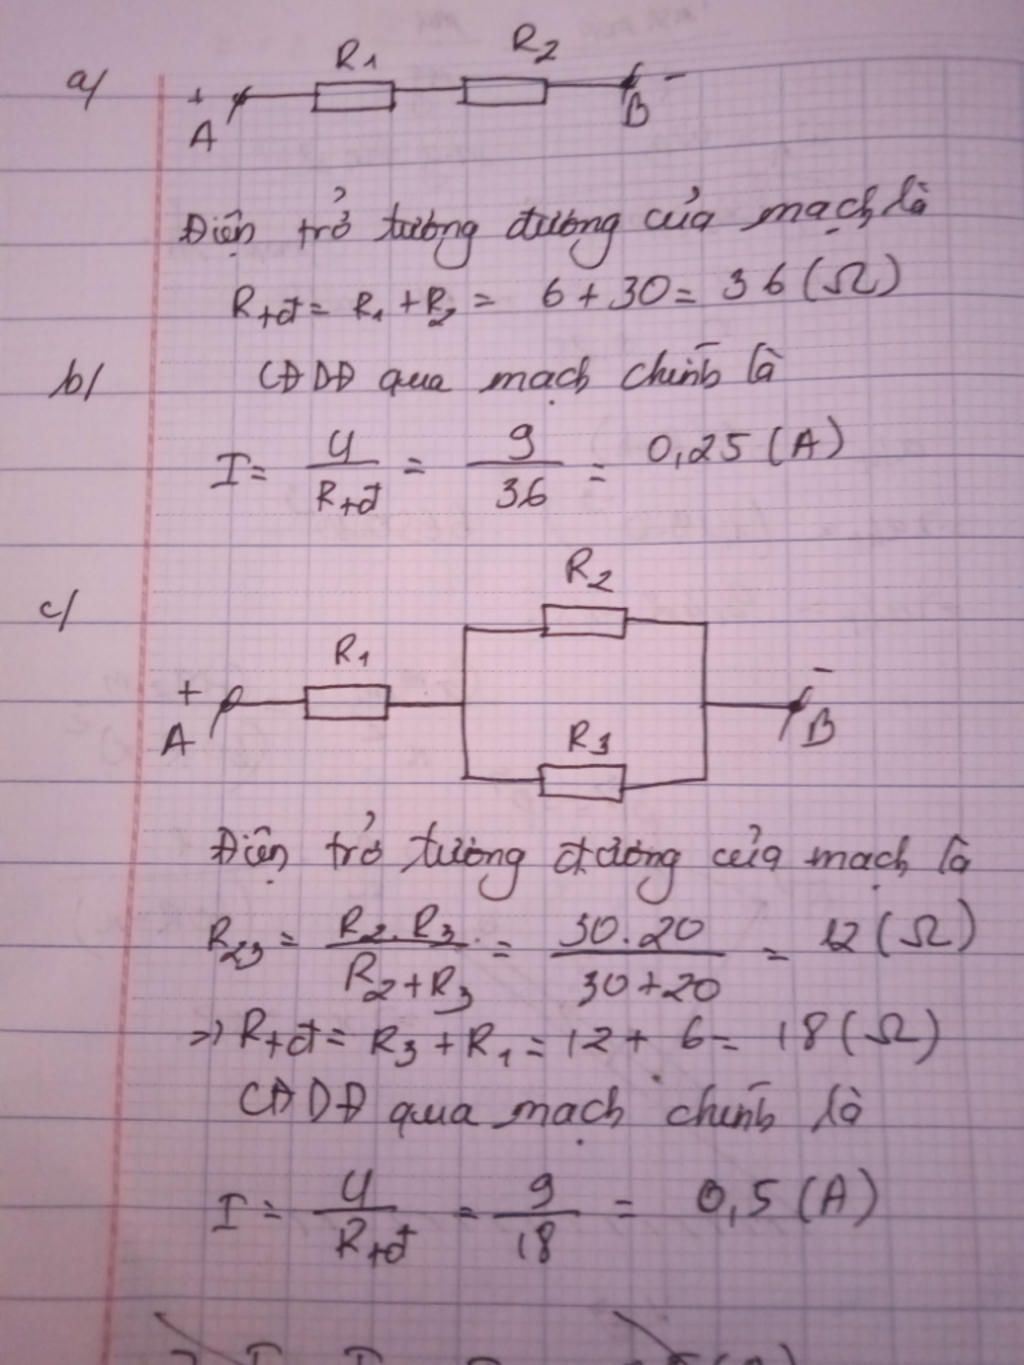 a/
R1 R2
+ A B -
Điện trở tương đương của mạch là
Rtđ = R1 + R2 = 6 + 30 = 36 (Ω)
b/ CĐDĐ qua mạch chính là
I = U/Rtđ = 9/36 = 0,25 (A)
c/
R2
R1
+ A B -
R3
Điện trở tương đương của mạch là
R23 = R2.R3/R2+R3 = 30.20/30+20 = 12 (Ω)
=> Rtđ = R3 + R1 = 12 + 6 = 18 (Ω)
CĐDĐ qua mạch chính là
I = U/Rtđ = 9/18 = 0,5 (A)